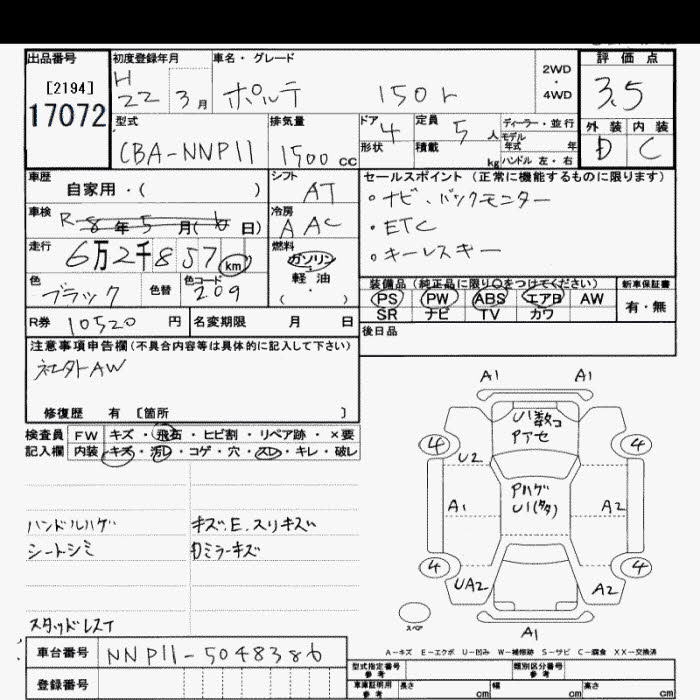 出品番号 初度登録年月 車名・グレード 評価点
[2194] H 22年 3月 ポルテ 150r 2WD・4WD 3.5
17072 型式 排気量 ドア 4 定員 5人 ディーラー・並行 外装 内装
モデル年式 年
CBA-NNP11 1500cc 形状 積載 kg ハンドル 左・右 D C
車歴 自家用・( ) シフト AT セールスポイント(正常に機能するものに限ります)
・ナビ、バックモニター
車検 R 8年5月(6日) 冷房 AAC ・ETC
走行 6万2千857km 燃料 ガソリン・軽油・( ) ・キーレスキー
色 ブラック 色替 色コード 209 装備品(純正品に限り○をつけてください) 新車保証書
PS PW ABS エアB AW 有・無
SR ナビ TV カワ
R券 10520円 名変期限 月 日 後日品
注意事項申告欄(不具合内容等は具体的に記入して下さい)
社外AW
修復歴 有 〔箇所 〕
検査員 FW キズ・飛石・ヒビ割・リペア跡・×要
記入欄 内装 キズ・汚レ・コゲ・穴・スレ・キレ・破レ
A1 A1
U1数コ
Pアセ
4 4
U2
A1 Pハゲ A2
U1(多)
4 4
UA2 A2
スペア
A1
ハンドルハゲ キズ、E、スリキズ
シートシミ Dミラーキズ
スタッドレスT
A-キズ E-エクボ U-凹み W-補修跡 S-サビ C-腐食 XX-交換済
車台番号 NNP11-5048386 型式指定番号 参考 類別区分番号 参考
登録番号 車庫証明用 参考 長さ cm 幅 cm 高さ cm